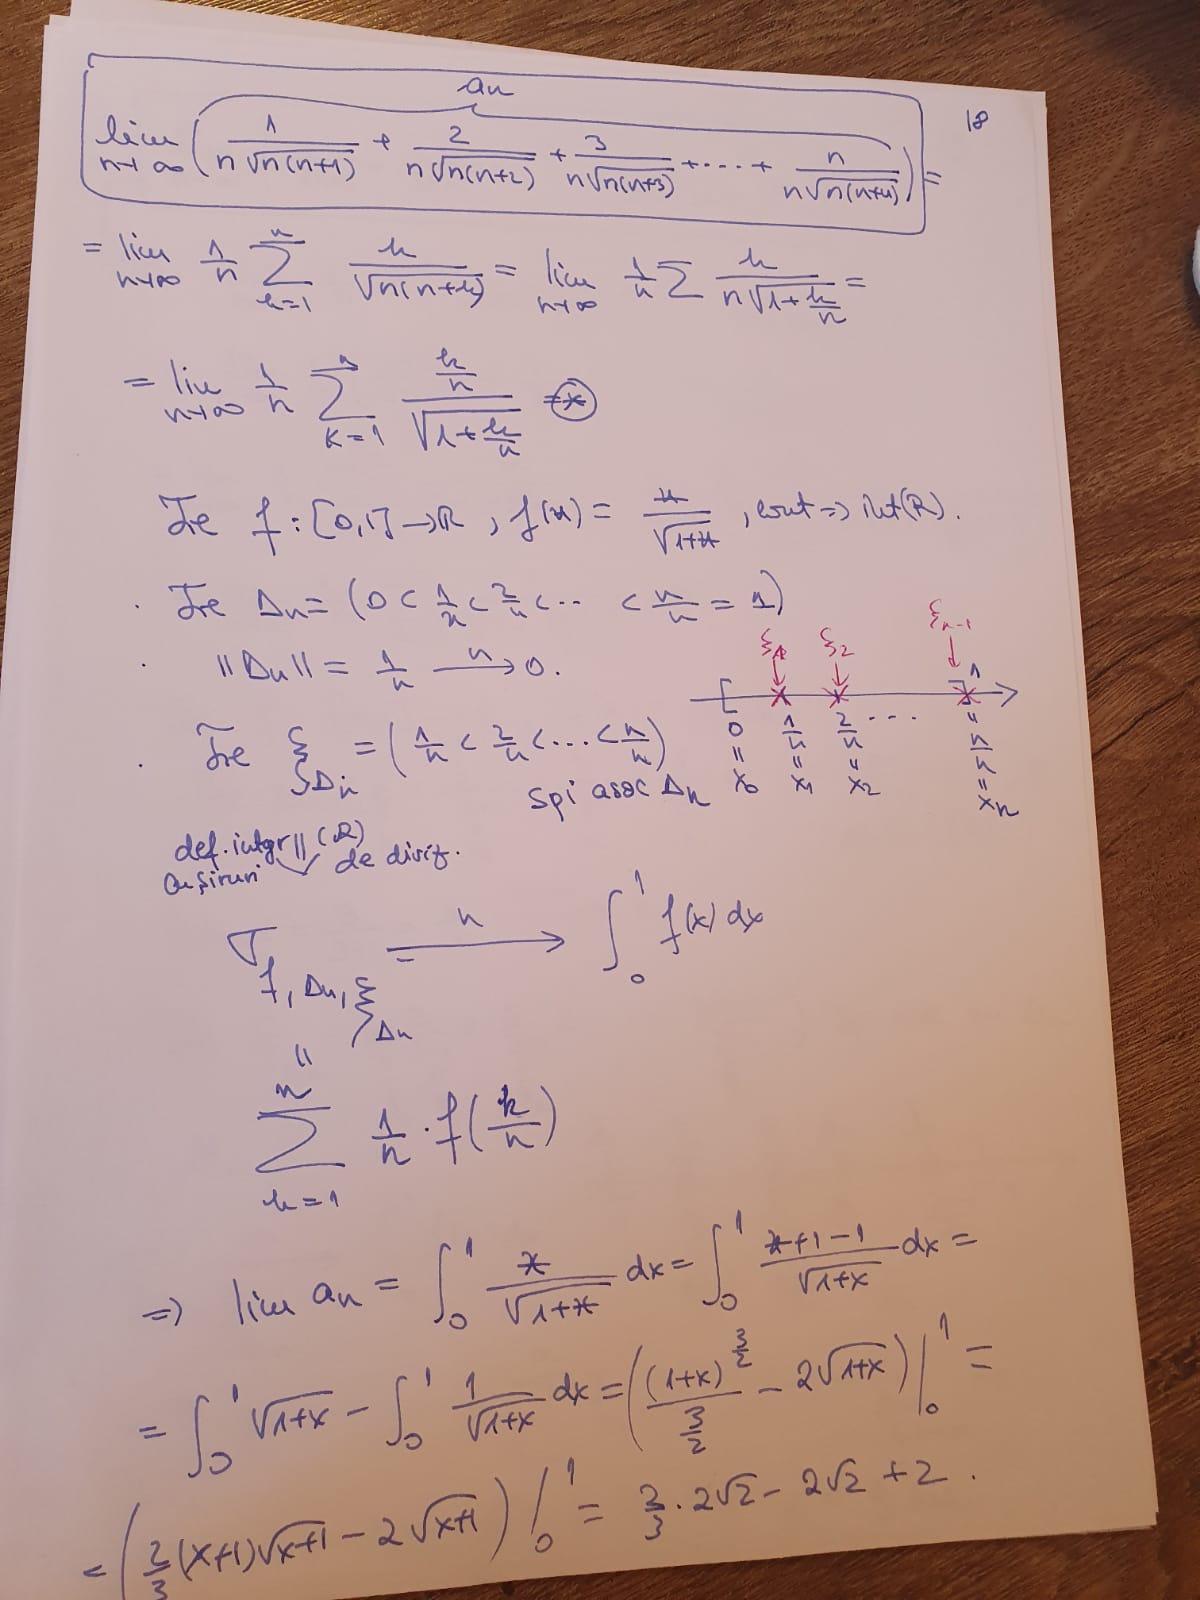 18
aₙ
lim n→∞ ( 1/(n√(n(n+1))) + 2/(n√(n(n+2))) + 3/(n√(n(n+3))) + .... + n/(n√(n(n+n))) ) =
= lim n→∞ 1/n ∑_{k=1}^{n} k/√(n(n+k)) = lim n→∞ 1/n ∑ k/(n√(1+k/n)) =
= lim n→∞ 1/n ∑_{k=1}^{n} (k/n)/√(1+k/n) = ⊛
Fie f : [0,1] → ℝ , f(x) = x/√(1+x) , cont => int(R).
. Fie Δn = (0 < 1/n < 2/n < ... < n/n = 1)
. ||Δn|| = 1/n →ⁿ 0.
ξ₁ ξ₂ ξₙ₋₁
[ ] 1
0 1/n 2/n .... n/n
= = = =
x₀ x₁ x₂ xₙ
. Fie ξ_Δn = (1/n < 2/n < ... < n/n)
spi asoc Δn
def. integr (R)
cu șiruri de diviz.
σ_{f, Δn, ξ_Δn} →ⁿ ∫₀¹ f(x) dx
=
∑_{k=1}^{n} 1/n · f(k/n)
=> lim aₙ = ∫₀¹ x/√(1+x) dx = ∫₀¹ (x+1-1)/√(1+x) dx =
= ∫₀¹ √(1+x) - ∫₀¹ 1/√(1+x) dx = ( (1+x)^{3/2}/(3/2) - 2√(1+x) ) |₀¹ =
= ( 2/3 (x+1)√(x+1) - 2√(x+1) ) |₀¹ = 2/3 · 2√2 - 2√2 + 2 .